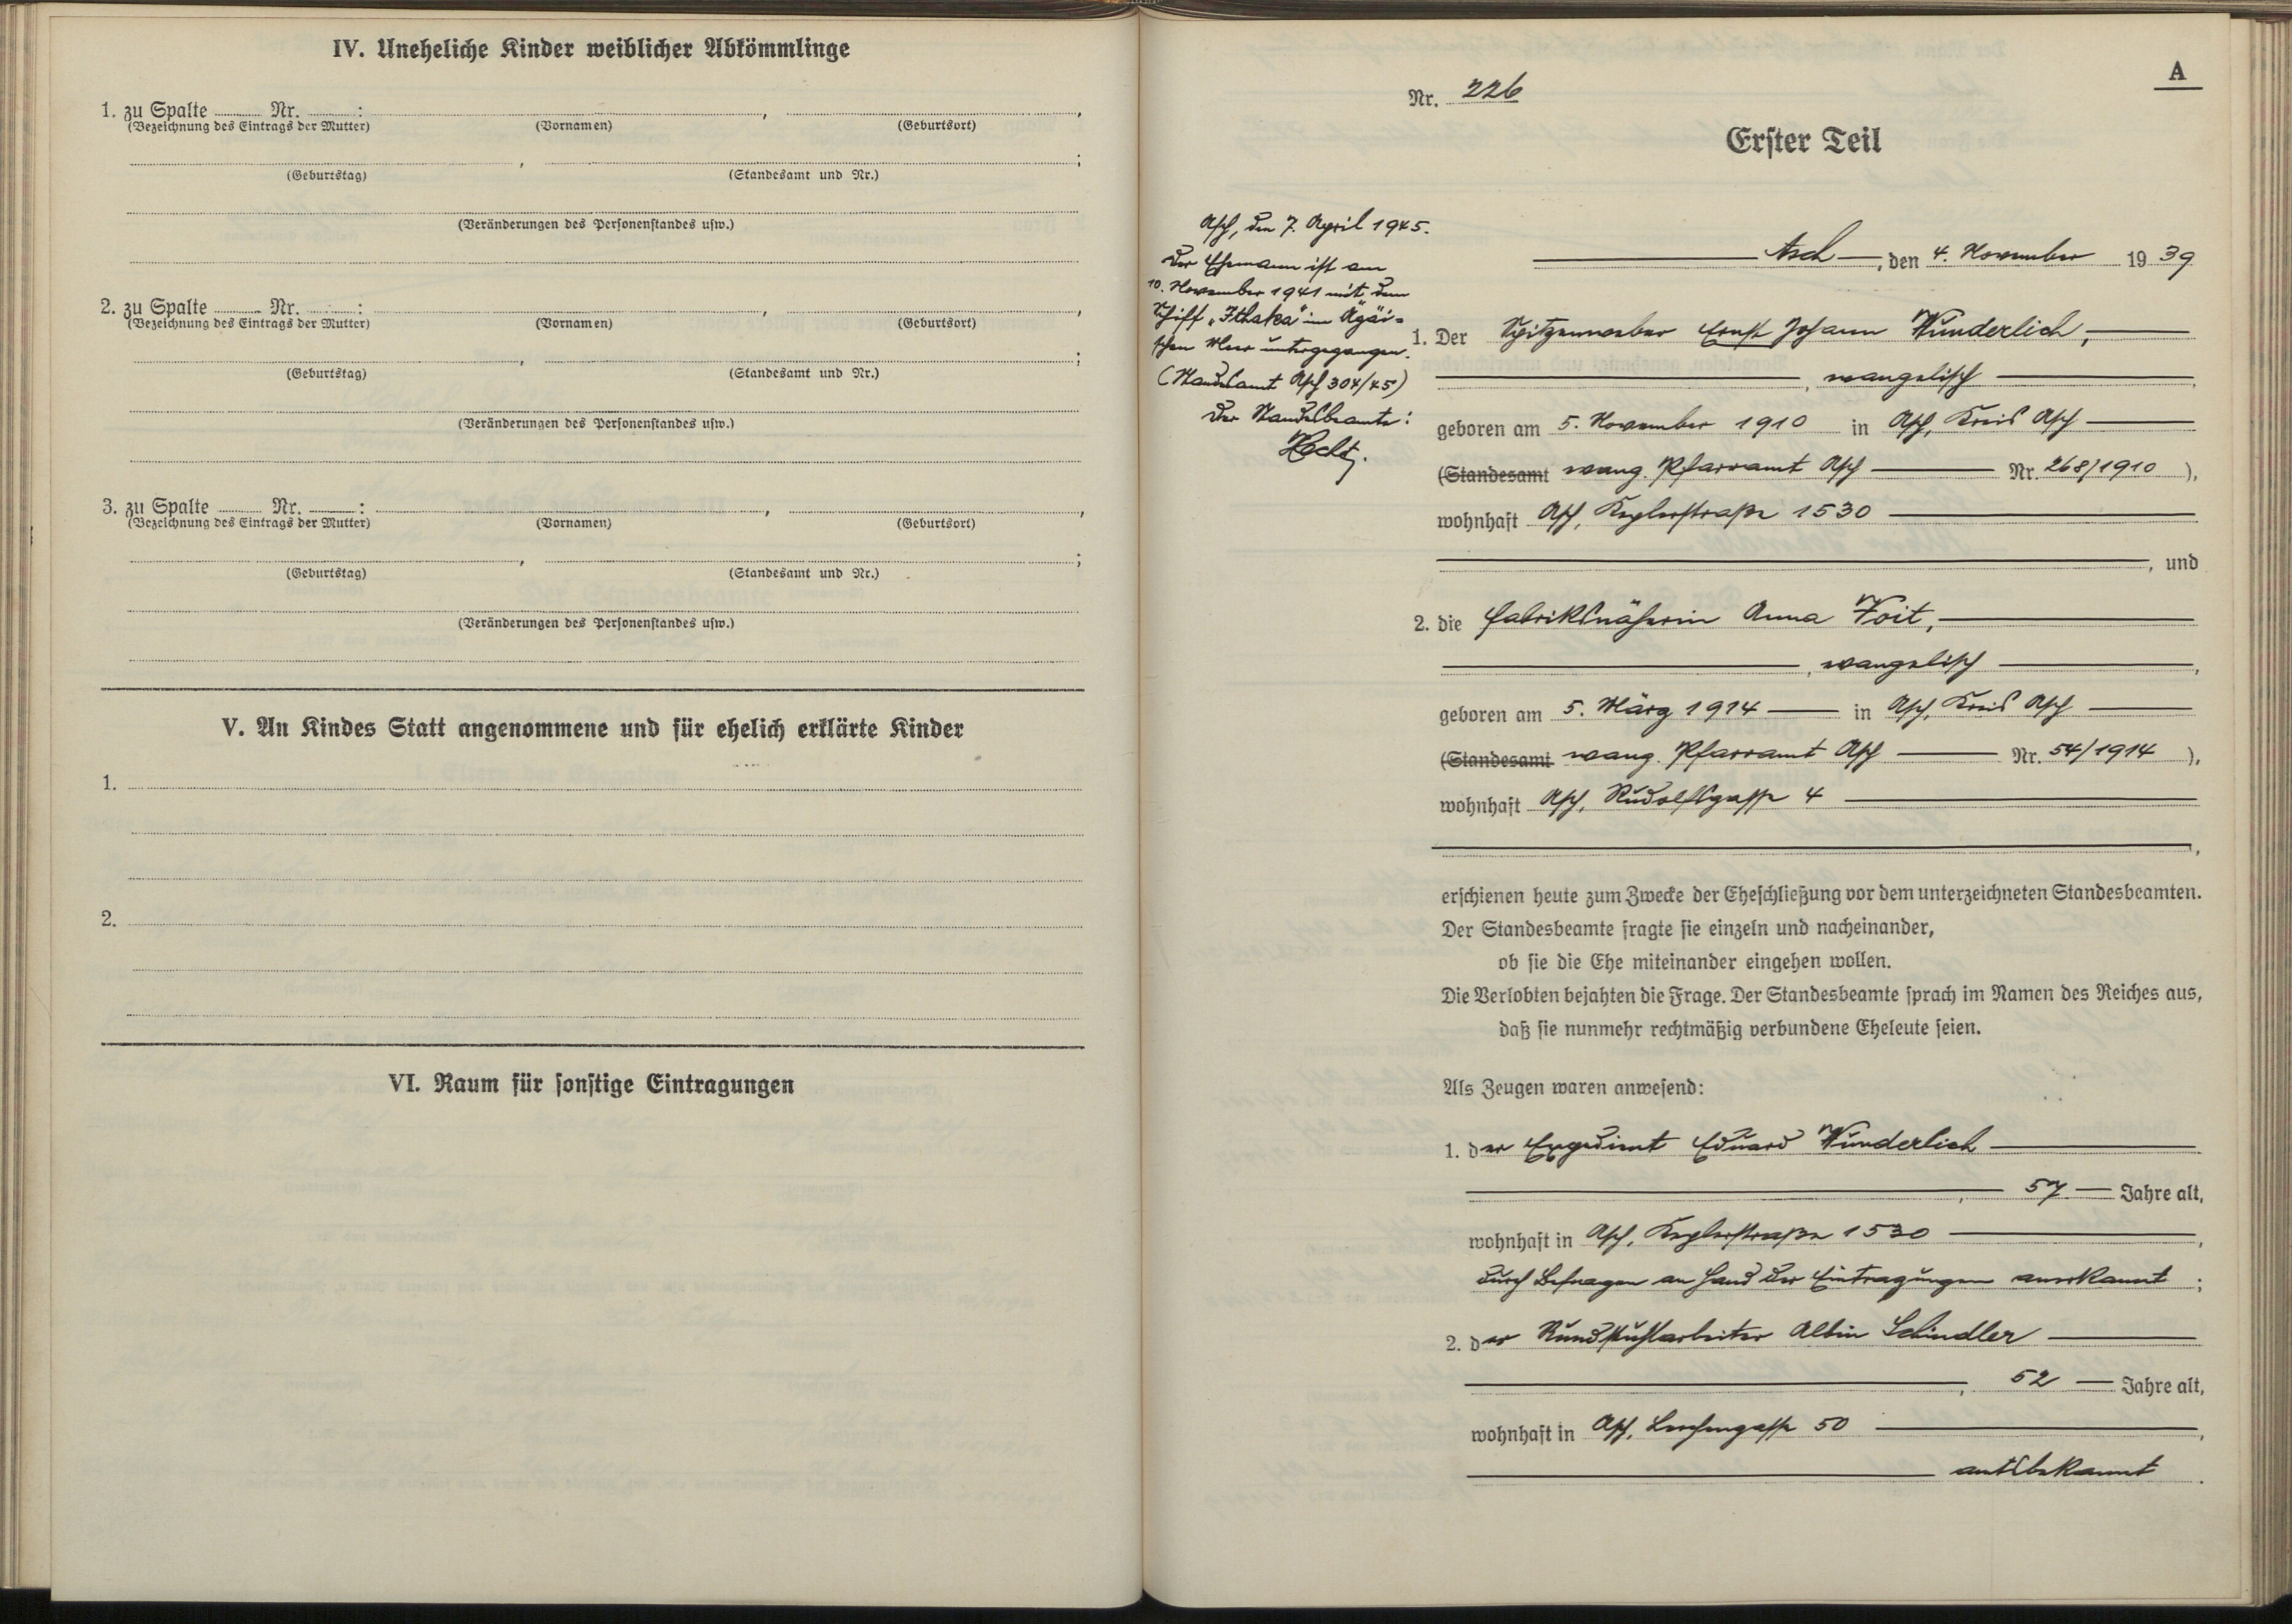 IV. Uneheliche Kinder weiblicher Abkömmlinge
1. zu Spalte Nr. : , ,
(Bezeichnung des Eintrags der Mutter) (Vornamen) (Geburtsort)
, ;
(Geburtstag) (Standesamt und Nr.)
(Veränderungen des Personenstandes usw.)
2. zu Spalte Nr. : , ,
(Bezeichnung des Eintrags der Mutter) (Vornamen) (Geburtsort)
, ;
(Geburtstag) (Standesamt und Nr.)
(Veränderungen des Personenstandes usw.)
3. zu Spalte Nr. : , ,
(Bezeichnung des Eintrags der Mutter) (Vornamen) (Geburtsort)
, ;
(Geburtstag) (Standesamt und Nr.)
(Veränderungen des Personenstandes usw.)
V. An Kindes Statt angenommene und für ehelich erklärte Kinder
1.
2.
VI. Raum für sonstige Eintragungen
A
Nr. 226
Erster Teil
Asch, den 7. April 1945.
Der Ehemann ist am
10. November 1941 mit dem
Schiff „Ithaka" im Ägäi-
schen Meer untergegangen.
(Standesamt Asch 304/45)
Der Standesbeamte:
Hecht
Asch, den 4. November 1939
1. Der Spitzenweber Ernst Johann Wunderlich,
, evangelisch ,
geboren am 5. November 1910 in Asch, Kreis Asch
(Standesamt evang. Pfarramt Asch Nr. 268/1910 ),
wohnhaft Asch, Keplerstraße 1530
, und
2. die Fabriksnäherin Anna Voit,
, evangelisch ,
geboren am 5. März 1914 in Asch, Kreis Asch
(Standesamt evang. Pfarramt Asch Nr. 54/1914 ),
wohnhaft Asch, Rudolfsgasse 4
,
erschienen heute zum Zwecke der Eheschließung vor dem unterzeichneten Standesbeamten.
Der Standesbeamte fragte sie einzeln und nacheinander,
ob sie die Ehe miteinander eingehen wollen.
Die Verlobten bejahten die Frage. Der Standesbeamte sprach im Namen des Reiches aus,
daß sie nunmehr rechtmäßig verbundene Eheleute seien.
Als Zeugen waren anwesend:
1. der Expedient Eduard Wunderlich
, 57 Jahre alt,
wohnhaft in Asch, Keplerstraße 1530 ,
durch Befragen an Hand der Eintragungen anerkannt ;
2. der Rundstuhlarbeiter Albin Schindler
, 52 Jahre alt,
wohnhaft in Asch, Lerchengasse 50 ,
amtsbekannt .